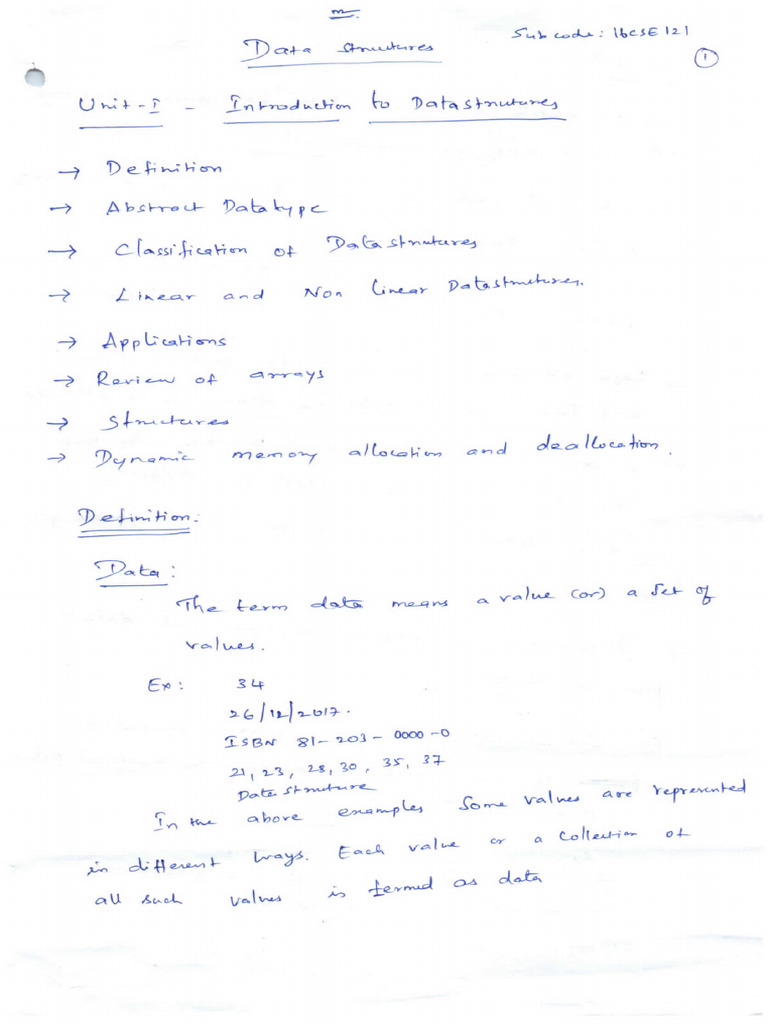 Data structures
Sub code: 16CSE121
1
Unit-I - Introduction to Datastrutures
→ Definition
→ Abstract Datatype
→ Classification of Datastrutures
→ Linear and Non linear Datastrutures.
→ Applications
→ Review of arrays
→ Structures
→ Dynamic memory allocation and deallocation.
Definition:
Data:
The term data means a value (or) a set of
values.
Ex: 34
26/12/2017.
ISBN 81-203-0000-0
21, 23, 28, 30, 35, 37
Data Struture
In the above examples some values are represented
in different ways. Each value or a collection of
all such values is termed as data